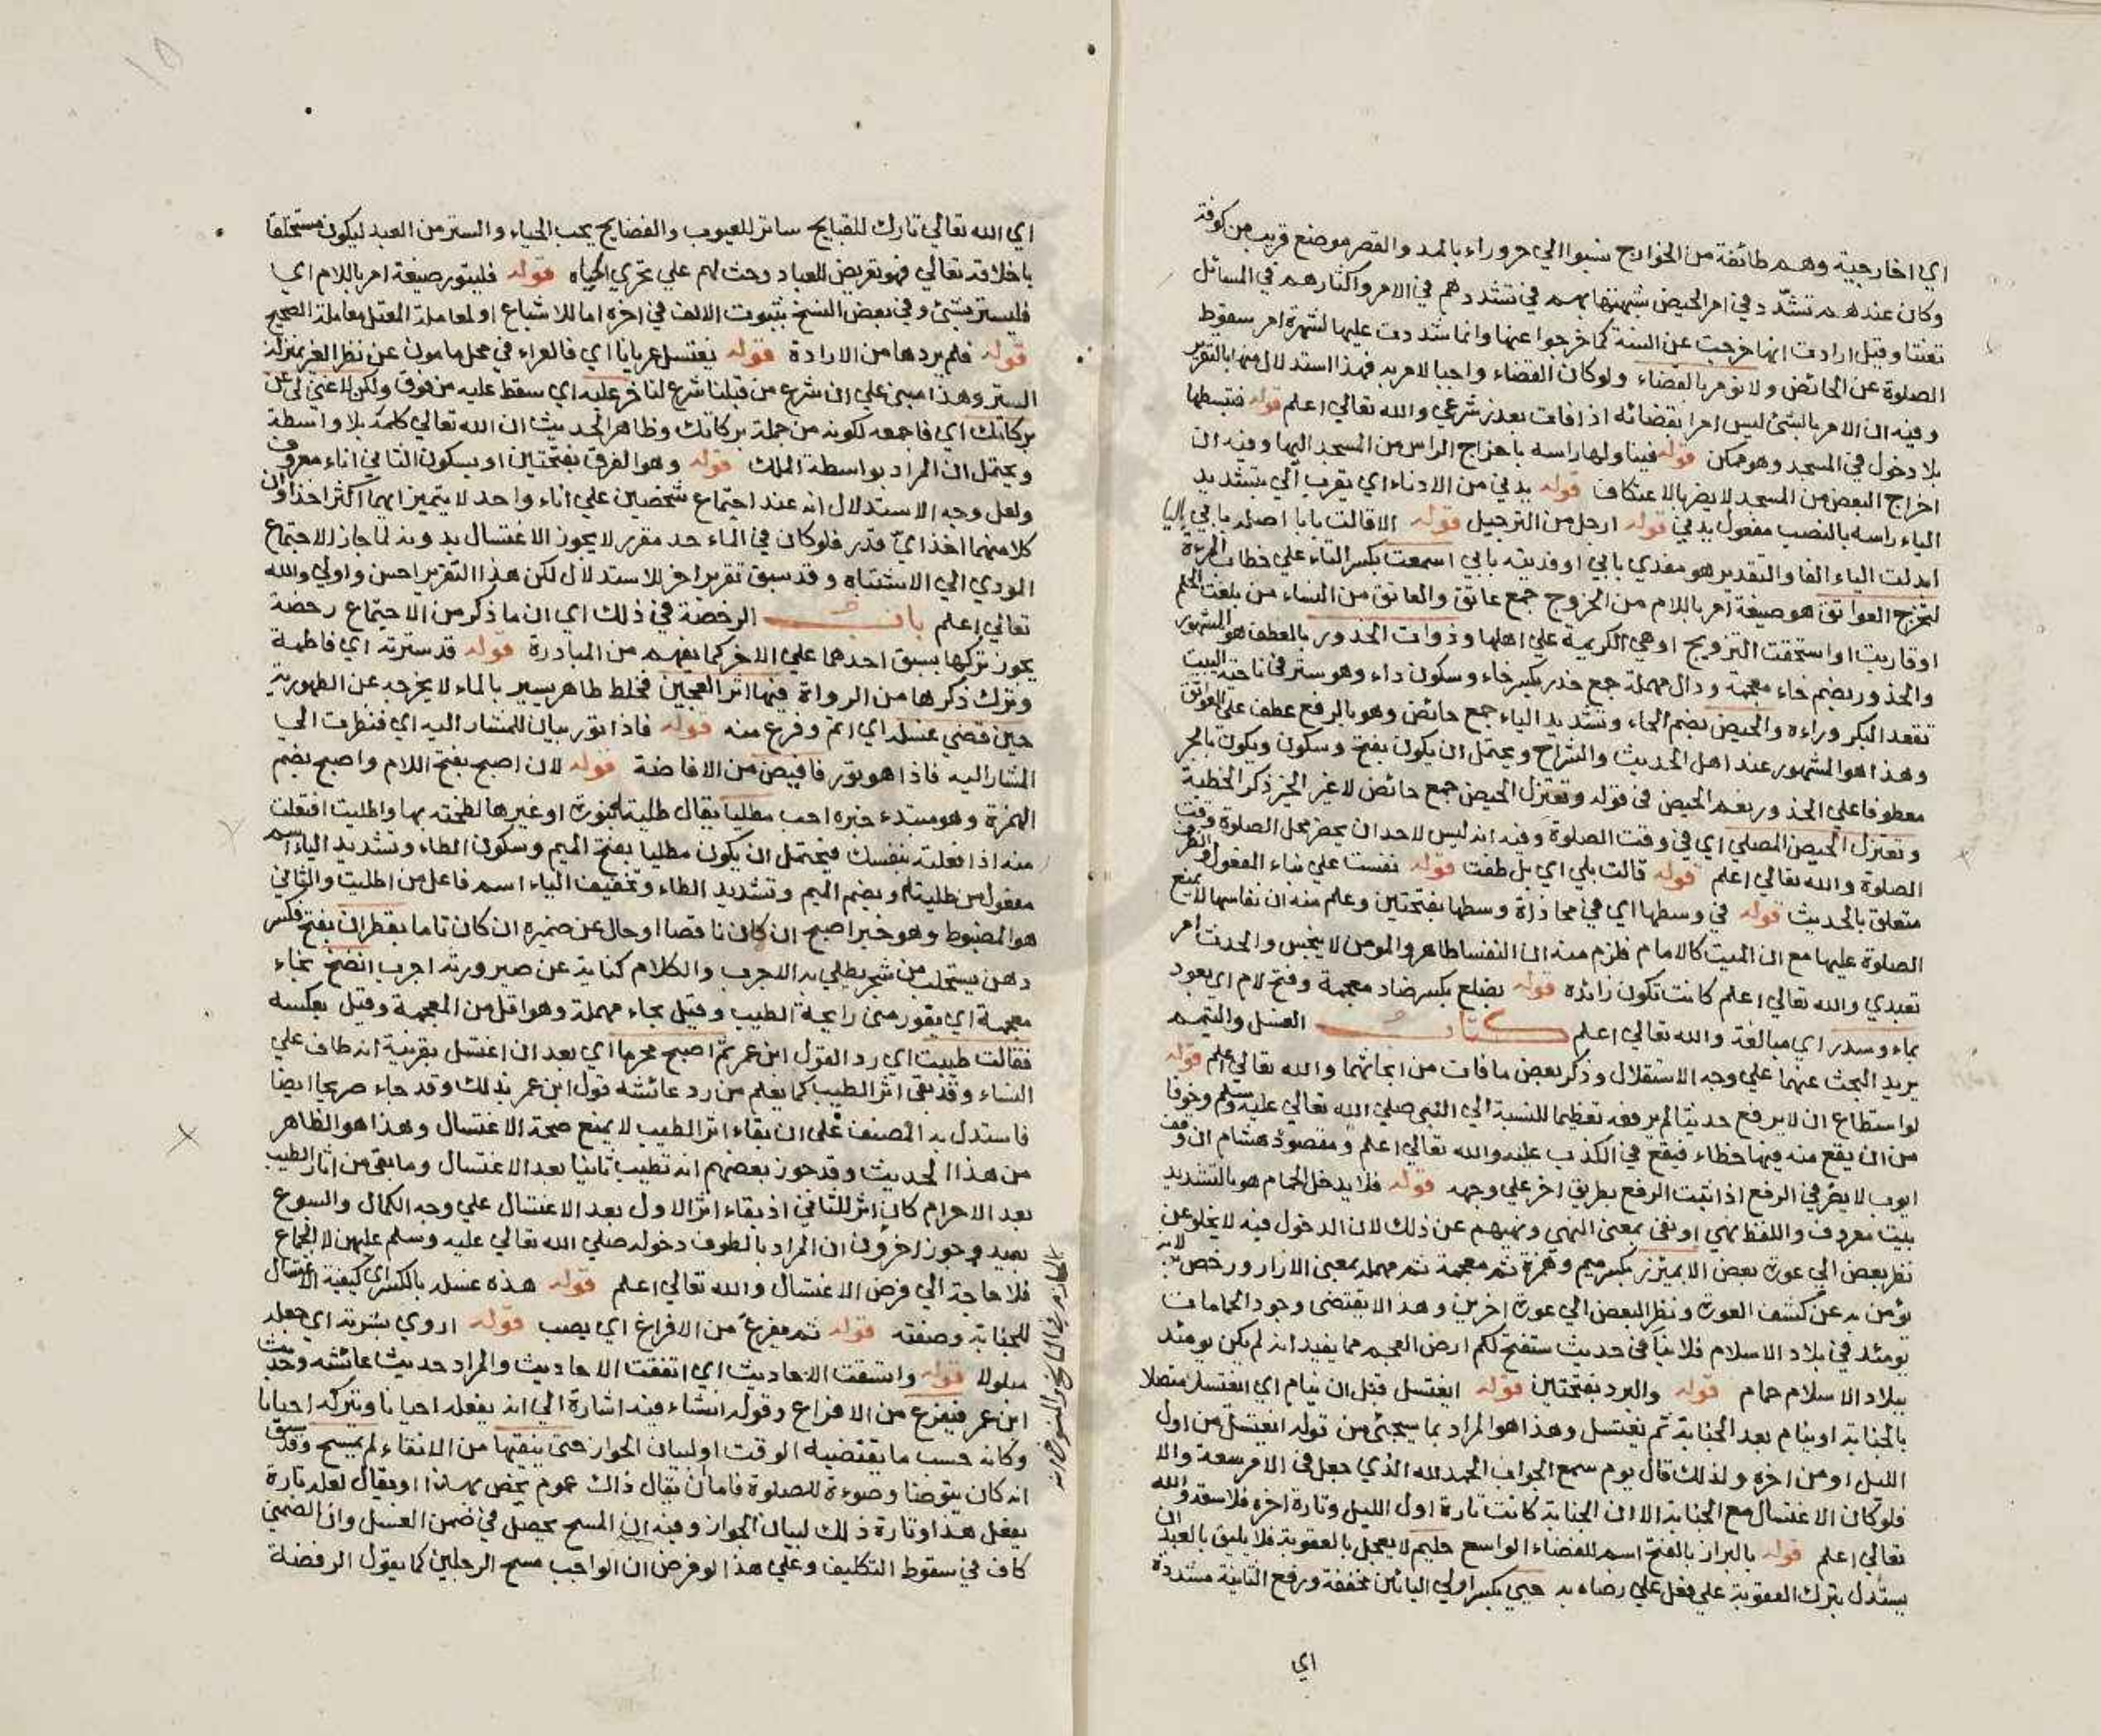 اي اخارجية وهم طائفة من الخوارج نسبوا الي حروراء بالمد والقصر موضع قريب من كوفة
وكان عندهم تشدد في امر الحيض شبهتها بهم في تشددهم في الامر واكثارهم في المسائل
تعنتا وقيل ارادت انها خرجت عن السنة كما خرجوا عنها وانما شددت عليها لشهرة امر سقوط
الصلوة عن الحائض ولا نؤمر بالقضاء ولو كان القضاء واجبا لامر به فهذا استدلال منها بالتقرير
وفيه ان الامر بالشئ ليس امرا بقضائه اذا فات بعذر شرعي والله تعالي اعلم قوله فتبسطها
بلا دخول في المسجد وهو ممكن قوله فيناولها راسه باخراج الراس من المسجد اليها وفيه ان
اخراج البعض من المسجد لا يضر بالاعتكاف قوله يدني من الادناء اي يقرب الي بتشديد
الياء راسه بالنصب مفعول يدني قوله ارجل من الترجيل قوله الا قالت بابا اصله بابي بالياء
ابدلت الياء الفا والتقدير هو مفدي بابي او فديته بابي اسمعت بكسر التاء علي خطاب المرءة
لتخرج العواتق هو صيغة امر باللام من الخروج جمع عاتق والعاتق من النساء من بلغت الحلم
او قاربت او استحقت التزويج او هي الكريمة علي اهلها وذوات الخدور بالعطف هو المشهور
والخدور بضم خاء معجمة ودال مهملة جمع خدر بكسر خاء وسكون دال وهو ستر في ناحية البيت
تقعد البكر وراءه والحيض بضم الحاء وتشديد الياء جمع حائض وهو بالرفع عطف علي العواتق
وهذا هو المشهور عند اهل الحديث والشراح ويحتمل ان يكون بفتح وسكون ويكون بالجر
معطوفا علي الخدور نعم الحيض في قوله وتعتزل الحيض جمع حائض لا غير الخ ذكر الخطبة
وتعتزل الحيض المصلي اي في وقت الصلوة وفيه انه ليس لاحد ان يحضر محل الصلوة وقت
الصلوة والله تعالي اعلم قوله قالت بلي اي بل طفت قوله نفست علي بناء المفعول
متعلق بالحديث قوله في وسطها اي في محاذاة وسطها بفتحتين وعلم منه ان نفاسها لا يمنع
الصلوة عليها مع ان الميت كالامام فلزم منه ان النفساء طاهر والمومن لا ينجس والحدث امر
تعبدي والله تعالي اعلم كانت تكون زائدة قوله بضلع بكسر ضاد معجمة وفتح لام اي بعود
بماء وسدر اي مبالغة والله تعالي اعلم كتاب الغسل والتيمم
يريد البحث عنهما علي وجه الاستقلال وذكر بعض ما فات من ابحاثهما والله تعالي اعلم قوله
لو استطاع ان لا يرفع حديثا لم يرفعه تعظيما للنسبة الي النبي صلي الله تعالي عليه وسلم وخوفا
من ان يقع منه فيها خطاء فيقع في الكذب عليه والله تعالي اعلم ومقصود هشام ان وقف
ايوب لا يضر في الرفع اذا ثبت الرفع بطريق اخر علي وجهه قوله فلا يدخل الحمام هو بالتشديد
بيت معروف واللفظ نهي او نفي بمعني النهي ونهيهم عن ذلك لان الدخول فيه لا يخلو عن
نظر بعض الي عورة بعض الا بميزر بكسر ميم وهمزة ثم معجمة ثم مهملة بمعني الازار ورخص به لانه
يؤمن به عن كشف العورة ونظر البعض الي عورة اخرين وهذا لا يقتضي وجود الحمامات
يومئذ في بلاد الاسلام فلا ينافي حديث ستفتح لكم ارض العجم مما يفيد انه لم يكن يومئذ
ببلاد الاسلام حمام قوله والبرد بفتحتين قوله ايغتسل قبل ان ينام اي ايغتسل متصلا
بالجنابة او ينام بعد الجنابة ثم يغتسل وهذا هو المراد بما سيجئ من قوله ايغتسل من اول
الليل او من اخره ولذلك قال يوم سمع الجواب الحمد لله الذي جعل في الامر سعة والا
فلو كان الاغتسال مع الجنابة الا ان الجنابة كانت تارة اول الليل وتارة اخره فلا سعة والله
تعالي اعلم قوله بالبراز بالفتح اسم للفضاء الواسع حليم لا يعجل بالعقوبة فلا يليق بالعبد ان
يستدل بترك العقوبة علي فعل علي رضاه به حيي بكسر اولي اليائين مخففة ورفع الثانية مشددة
اي
اي الله تعالي تارك للقبايح ساتر للعيوب والفضايح يحب الحياء والستر من العبد ليكون متخلقا
باخلاقه تعالي فهو تعريض للعباد وحث لهم علي تحري الحياء قوله فليتور صيغة امر باللام اي
فليستتر بشئ وفي بعض النسخ بثبوت الالف في اخره اما للاشباع او لمعاملة المعتل معاملة الصحيح
قوله فلم يردها من الارادة قوله يغتسل عريانا اي فالعراء في محل مامون عن نظر الغير بمنزلة
الستر وهذا مبني علي ان شرع من قبلنا شرع لنا خر عليه اي سقط عليه من فوق ولكن لا غني لي عن
بركاتك اي فاجمعه لكونه من جملة بركاتك وظاهر الحديث ان الله تعالي كلمه بلا واسطة
ويحتمل ان المراد بواسطة الملك قوله وهو الفرق بفتحتين او بسكون الثاني اناء معروف
ولعل وجه الاستدلال انه عند اجتماع شخصين علي اناء واحد لا يتميز ايهما اكثر اخذا وان
كلا منهما اخذ اي قدر فلو كان في الماء حد مقرر لا يجوز الاغتسال بدونه لما جاز الاجتماع
المودي الي الاشتباه وقد سبق تقرير اخر للاستدلال لكن هذا التقرير احسن واولي والله
تعالي اعلم باب الرخصة في ذلك اي ان ما ذكر من الاجتماع رخصة
يجوز تركها بسبق احدهما علي الاخر كما يفهم من المبادرة قوله قد سترته اي فاطمة
وترك ذكرها من الرواة فيها اثر العجين فخلط طاهر يسير بالماء لا يخرجه عن الطهورية
حين قضي غسله اي اتم وفرغ منه قوله فاذا تور بيان للمشار اليه اي فنظرت الي
المشار اليه فاذا هو تور فافيض من الافاضة قوله لان اصبح بفتح اللام واصبح بضم
الهمزة وهو مبتدء خبره احب مطليا يقال طليته بنورة او غيرها لطخته بها واطليت افتعلت
منه اذا فعلته بنفسك فيحتمل ان يكون مطليا بفتح الميم وسكون الطاء وتشديد الياء اسم
مفعول من طليته وبضم الميم وتشديد الطاء وتخفيف الياء اسم فاعل من اطليت والثاني
هو المضبوط وهو خبر اصبح ان كان ناقصا او حال عن ضميره ان كان تاما بقطران بفتح فكسر
دهن يستحلب من شجر يطلي به الاجرب والكلام كناية عن صيرورته اجرب انضخ بخاء
معجمة اي يفور مني رايحة الطيب وقيل بحاء مهملة وهو اقل من المعجمة وقيل بعكسه
فقالت طيبت اي رد القول ابن عمر ثم اصبح محرما اي بعد ان اغتسل بقرينة انه طاف علي
النساء وقد بقي اثر الطيب كما يعلم من رد عائشة قول ابن عمر بذلك وقد جاء صريحا ايضا
فاستدل به المصنف علي ان بقاء اثر الطيب لا يمنع صحة الاغتسال وهذا هو الظاهر
من هذا الحديث وقد جوز بعضهم انه تطيب ثانيا بعد الاغتسال وما بقي من اثار الطيب
بعد الاحرام كان اثر للثاني اذ بقاء اثر الاول بعد الاغتسال علي وجه الكمال والسبوغ
بعيد وجوز اخرون ان المراد بالطوف دخوله صلي الله تعالي عليه وسلم عليهن لا الجماع
فلا حاجة الي فرض الاغتسال والله تعالي اعلم قوله هذه غسله بالكسر اي كيفية الاغتسال
للجنابة وصفته قوله ثم يفرغ من الافراغ اي يصب قوله اروي بشرته اي جعله
مبلولا قوله واتسقت الاحاديث اي اتفقت الاحاديث والمراد حديث عائشه وحديث
ابن عمر فيفرغ من الافراغ وقوله ان شاء فيه اشارة الي انه يفعله احيانا ويتركه احيانا
وكانه حسب ما يقتضيه الوقت او لبيان الجواز حتي ينقيها من الانقاء لم يمسح وقد سبق
انه كان يتوضا وضوءه للصلوة فاما ان يقال ذاك عموم يخص بهذا او يقال لعله تارة
يفعل هذا وتارة ذلك لبيان الجواز وفيه ان المسح يحصل في ضمن الغسل وان الضمني
كاف في سقوط التكليف وعلي هذا لو فرض ان الواجب مسح الرجلين كما يقول الرفضة